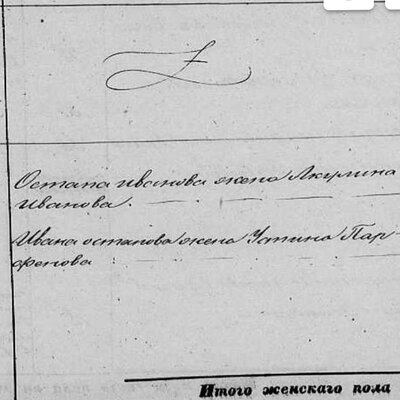 Остапа иванова жена Акулина
Иванова.
Ивана остапова жена Устина Пар-
фенова
Итого женскаго пола